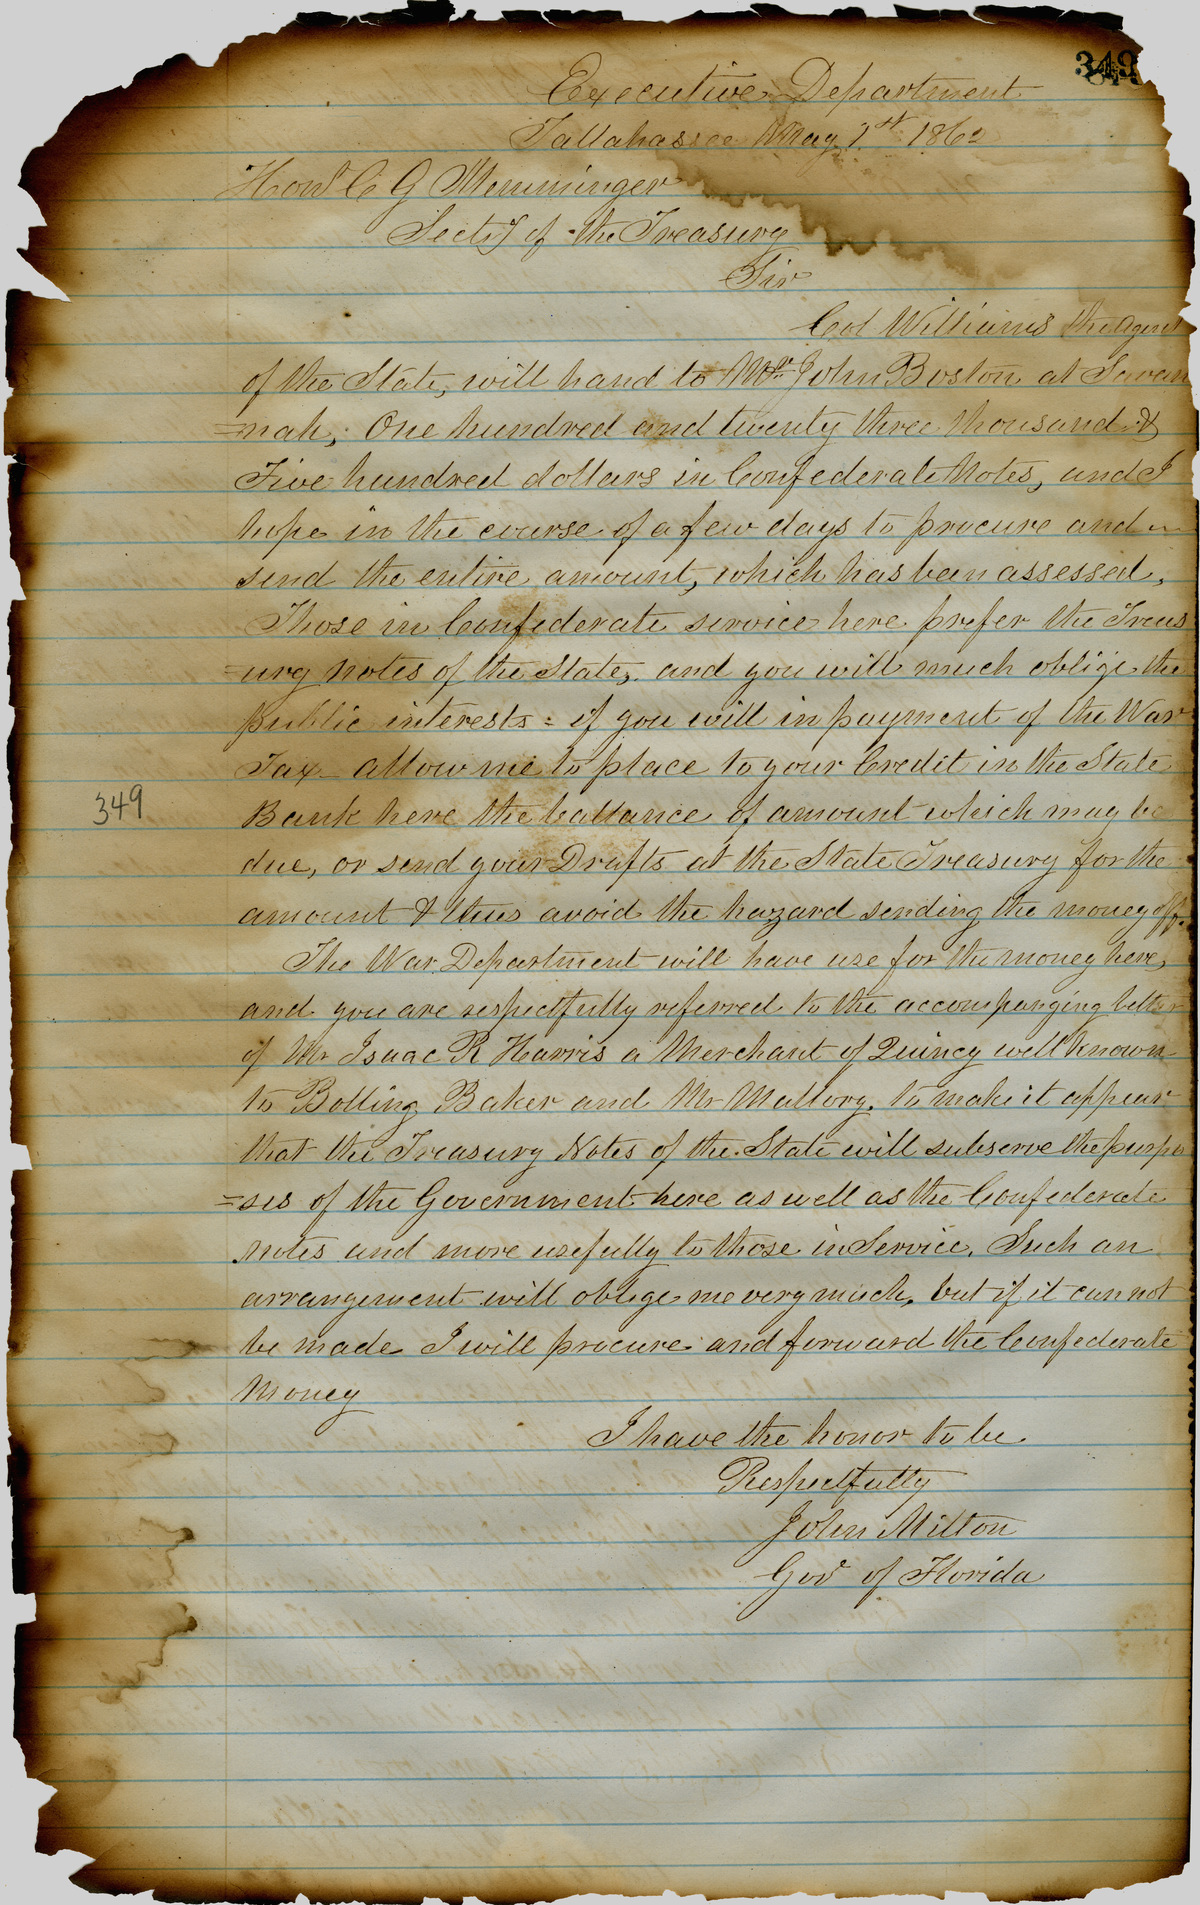 349
Executive Department
Tallahassee May 1st 1862
Honl C G Memminger
Secty of the Treasury
Sir
Col Williams the Agent
of the State, will hand to Mr. John Boston at Savan
=nah, One hundred and twenty three thousand &
Five hundred dollars in Confederate Notes, and I
hope in the course of a few days to procure and
send the entire amount, which has been assessed,
Those in Confederate service here prefer the Treas
=ury notes of the State, and you will much oblige the
public interests = if you will in payment of the War
Tax - allow me to place to your Credit in the State
349
Bank here the ballance of amount which may be
due, or send your Drafts at the State Treasury for the
amount & thus avoid the hazard sending the money off.
The War Department will have use for the money here,
and you are respectfully referred to the accompanging letter
of Mr Isaac R Harris a Merchant of Quincy well known
to Bolling Baker and Mr Mallory. to make it appear
that the Treasury Notes of the State will subserve the purpo
=ses of the Government here as well as the Confederate
notes and more usefully to those in Service. Such an
arrangement will oblige me very much, but if it can not
be made I will procure and forward the Confederate
Money
I have the honor to be
Respectfully
John Milton
Gov of Florida